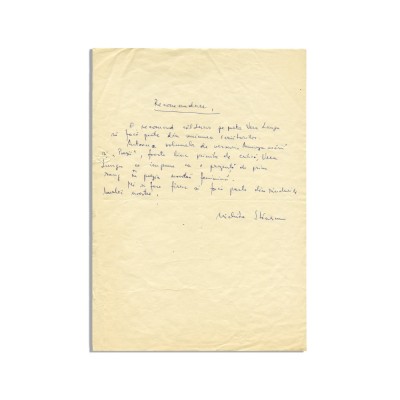 Recomandare,
O recomand călduros pe poeta Vera Lungu
să facă parte din uniunea scriitorilor.
Autoarea volumele de versuri
și „Poezii”, foarte bine primite de critică, Vera
Lungu se impune ca o prezență de prim
rang în poezia noastră feminină.
Mi-ar face fericit să facă parte din rândurile
breslei noastre.
Nichita Stănescu